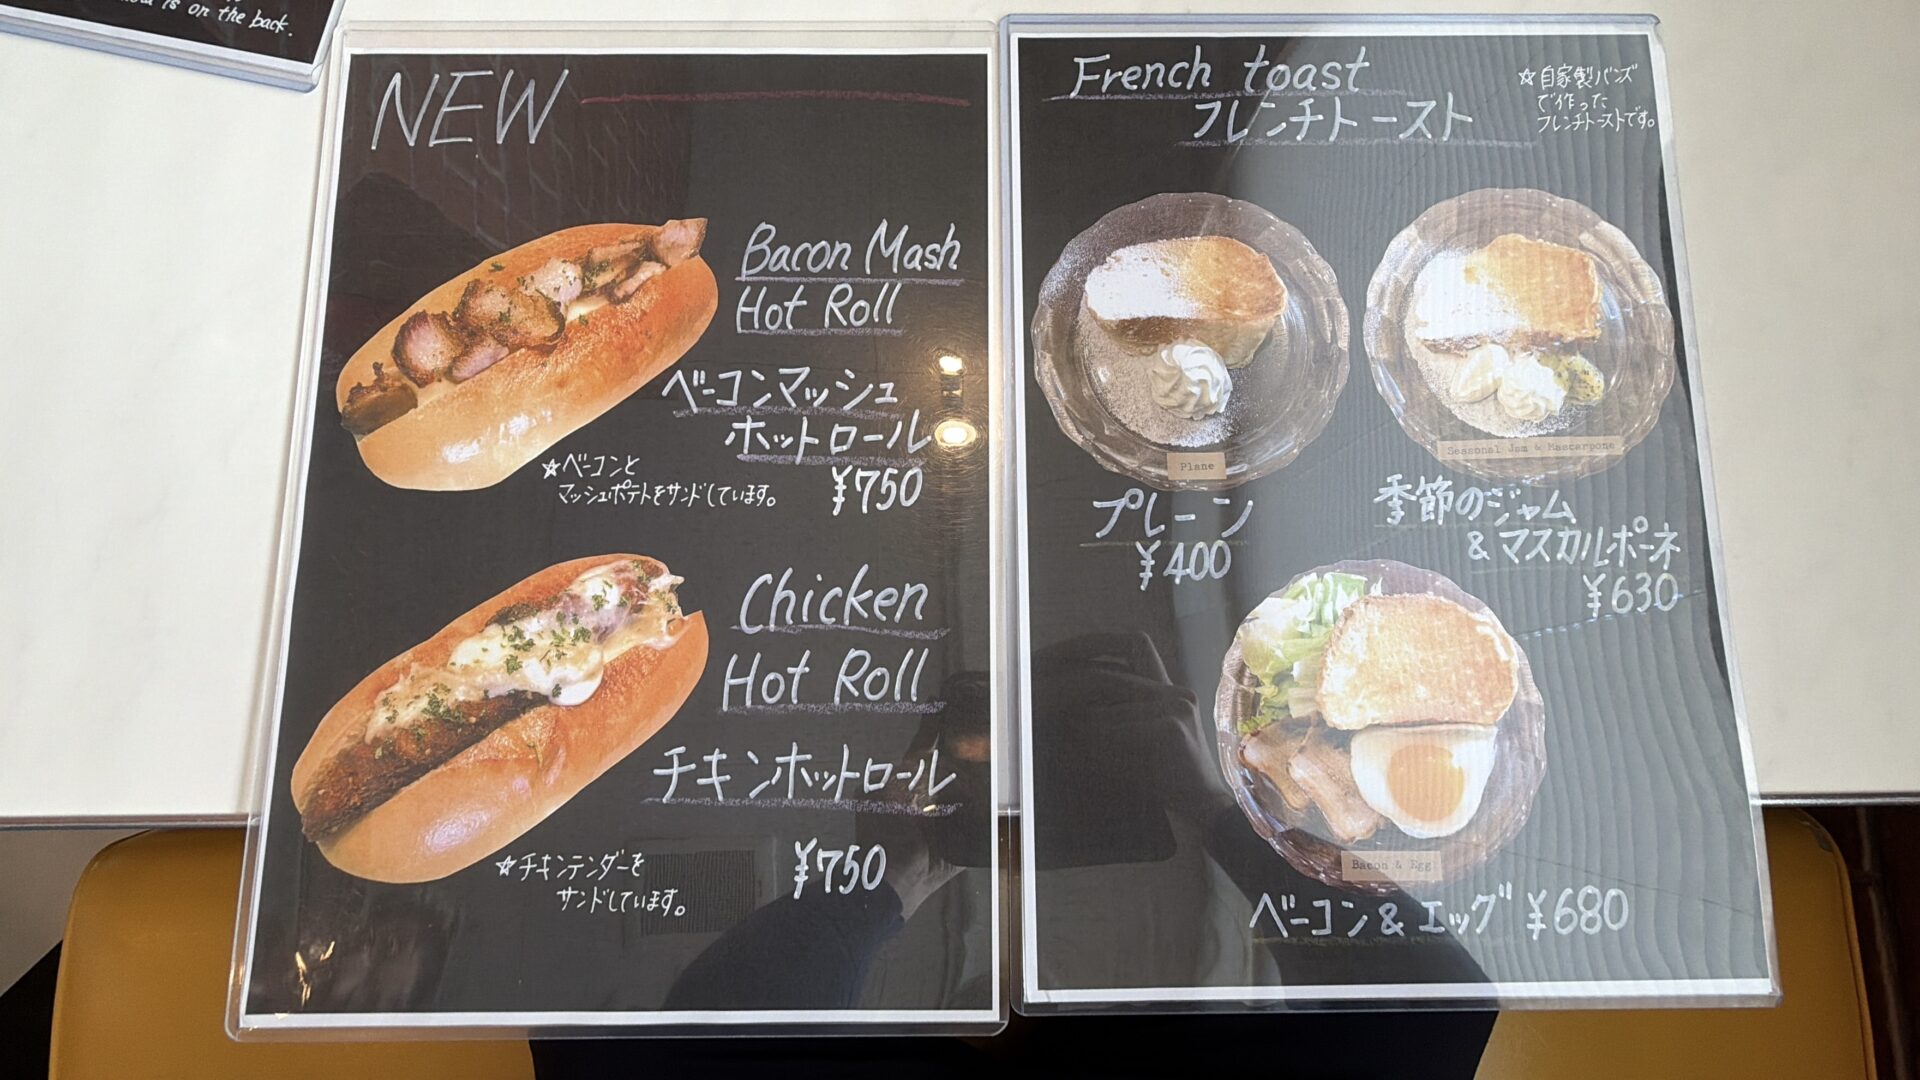 is on the back.
NEW
Bacon Mash
Hot Roll
ベーコンマッシュ
ホットロール
¥750
☆ベーコンと
マッシュポテトをサンドしています。
Chicken
Hot Roll
チキンホットロール
¥750
☆チキンテンダーを
サンドしています。
French toast
フレンチトースト
☆自家製バンズ
で作った
フレンチトーストです。
Plane
プレーン
¥400
Seasonal Jam & Mascarpone
季節のジャム
& マスカルポーネ
¥630
Bacon & Egg
ベーコン & エッグ ¥680